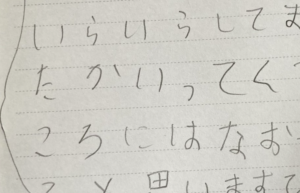 いらいらしてま
たがいってく
ころにはなお
と思います